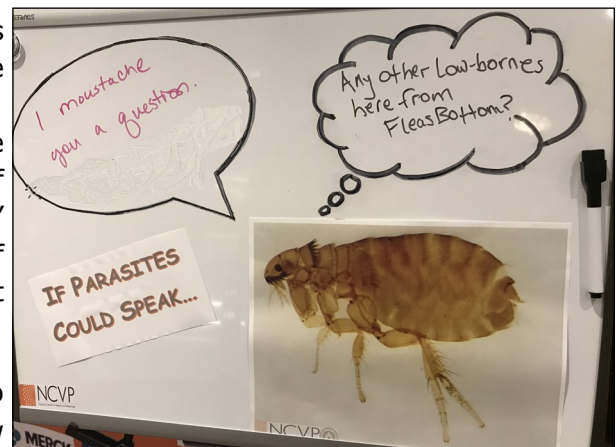 I moustache
you a question.
Any other Low-bornes
here from
FleasBottom?
IF PARASITES
COULD SPEAK...
NCVP
NCVP
MERCK